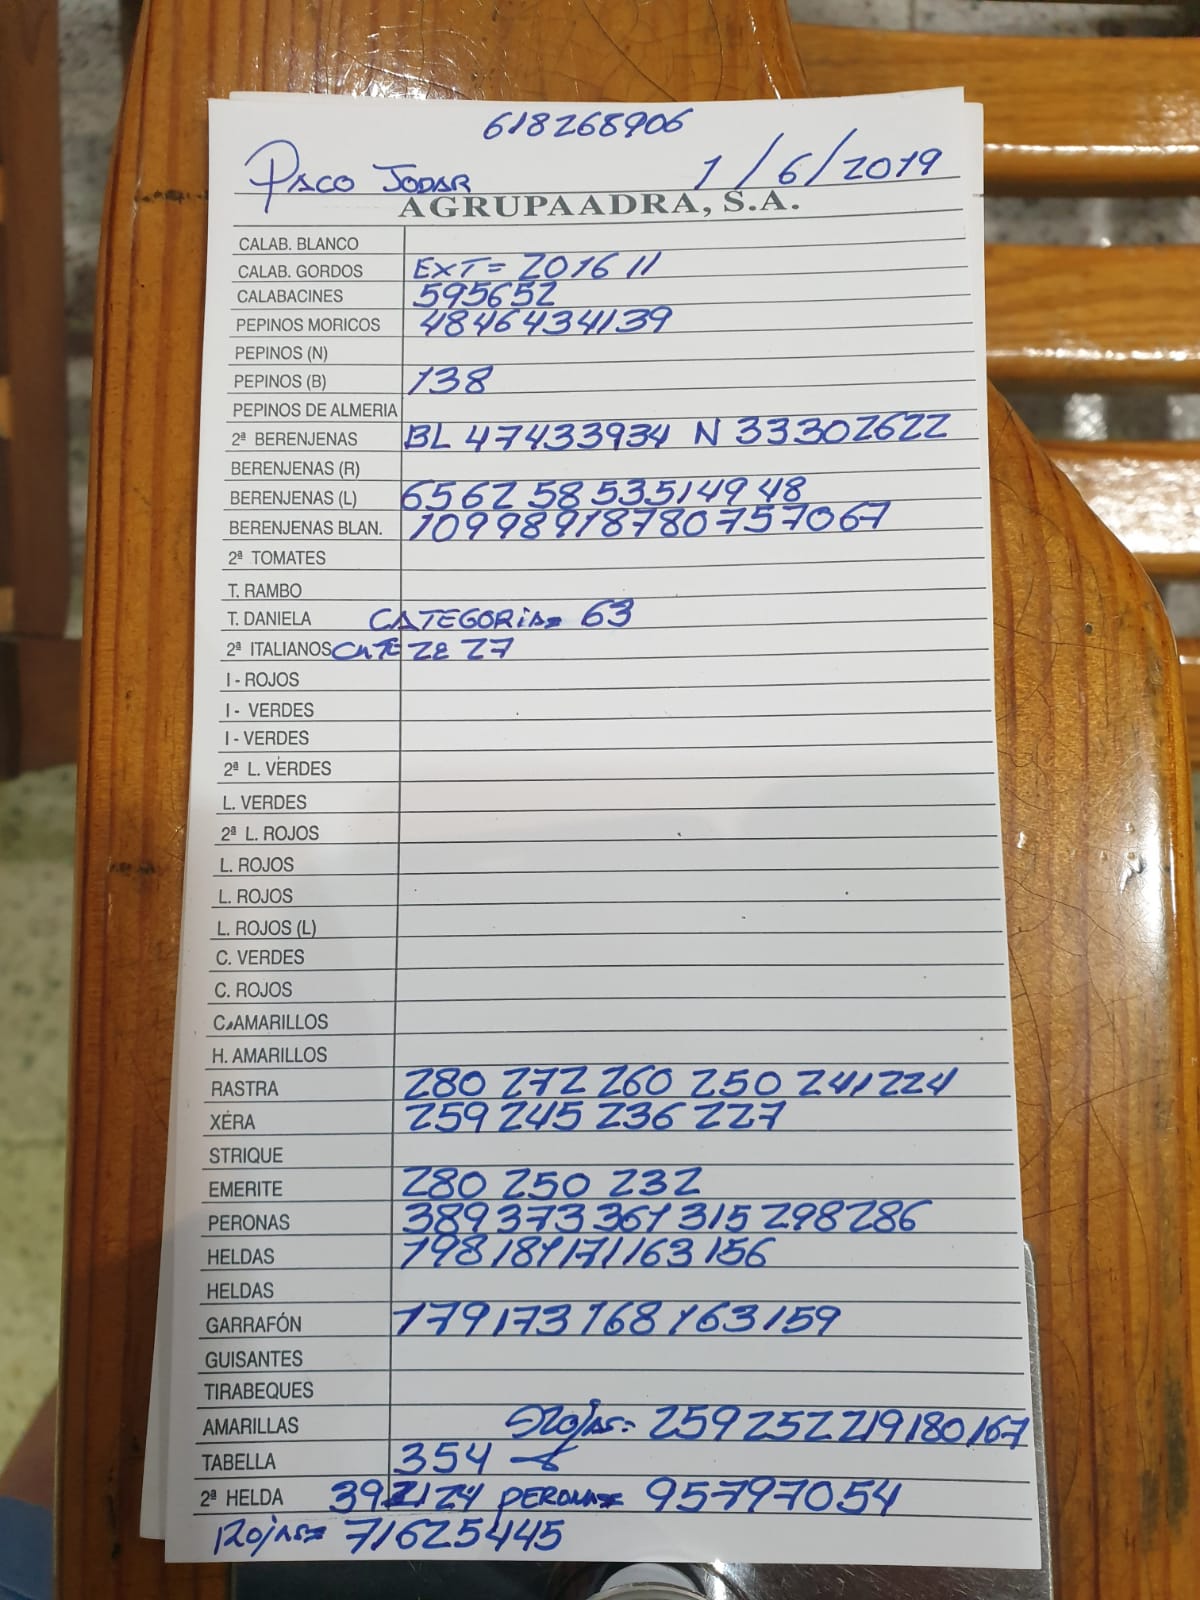 618268906
PACO JODAR 1/6/2019
AGRUPAADRA, S.A.
CALAB. BLANCO
CALAB. GORDOS EXT= 201611
CALABACINES 595652
PEPINOS MORICOS 4846434139
PEPINOS (N)
PEPINOS (B) 138
PEPINOS DE ALMERIA
2ª BERENJENAS BL 47433934 N 33302622
BERENJENAS (R)
BERENJENAS (L) 6562 58 53514948
BERENJENAS BLAN. 10998918780757067
2ª TOMATES
T. RAMBO
T. DANIELA CATEGORIA= 63
2ª ITALIANOS CATE 28 27
I - ROJOS
I - VERDES
I - VERDES
2ª L. VERDES
L. VERDES
2ª L. ROJOS
L. ROJOS
L. ROJOS
L. ROJOS (L)
C. VERDES
C. ROJOS
C. AMARILLOS
H. AMARILLOS
RASTRA 280 272 260 250 241 224
XÉRA 259 245 236 227
STRIQUE
EMERITE 280 250 232
PERONAS 389 373 361 315 298 286
HELDAS 198 181 171 163 156
HELDAS
GARRAFÓN 179 173 168 163 159
GUISANTES
TIRABEQUES
AMARILLAS Rojas= 259 252 219 180 167
TABELLA 354
2ª HELDA PERONA= 95797054
Rojas= 71625445